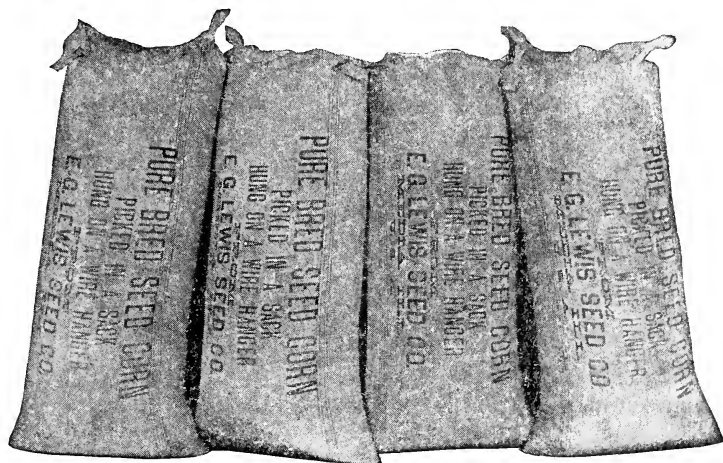 PURE BRED SEED CORN
PICKED IN A SACK
HUNG ON A WIRE HANGER
FROM
E.G. LEWIS SEED CO.
PURE BRED SEED CORN
PICKED IN A SACK
HUNG ON A WIRE HANGER
FROM
E.G. LEWIS SEED CO.
PURE BRED SEED CORN
PICKED IN A SACK
HUNG ON A WIRE HANGER
FROM
E.G. LEWIS SEED CO.
MEDIA ILL
PURE BRED SEED CORN
PICKED IN A SACK
HUNG ON A WIRE HANGER
FROM
E.G. LEWIS SEED CO
MEDIA ILL